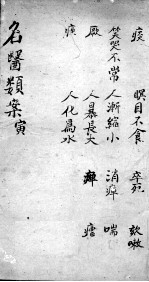 痰 瞑目不食 欬嗽
笑哭不常 人漸縮小 消癉 喘
厥 人暴長大
人化為水
名醫類案 寅